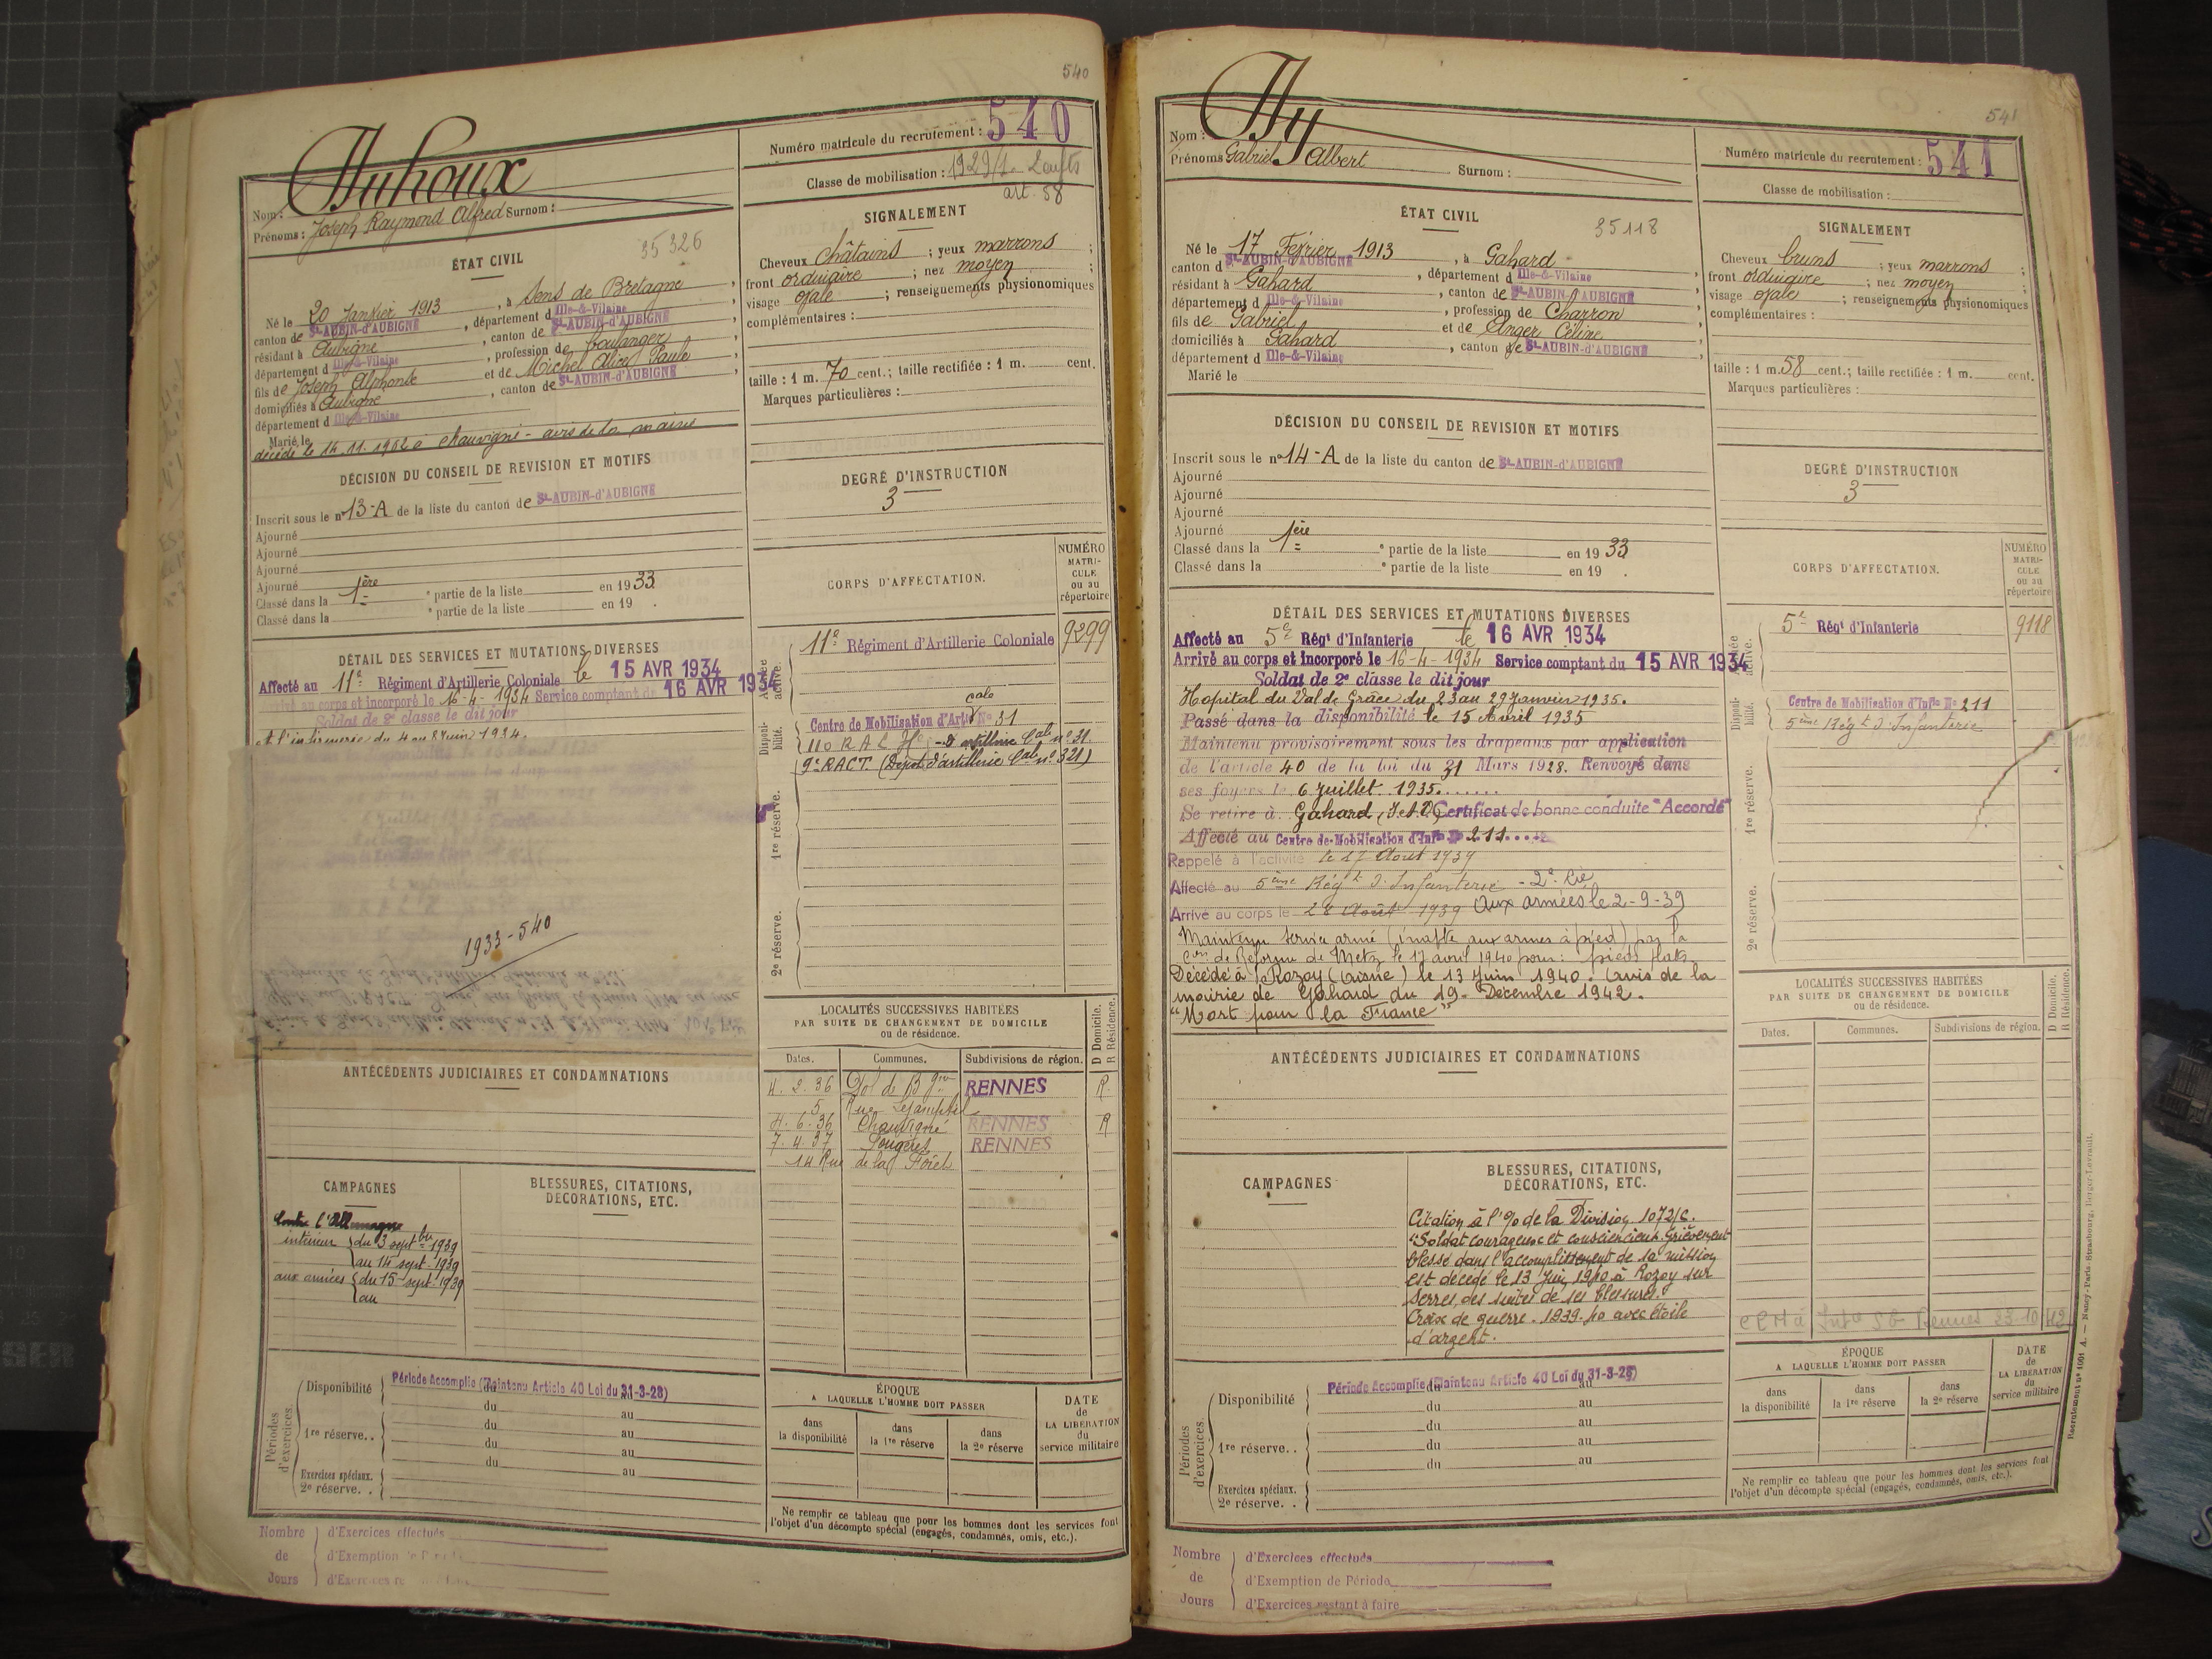 540
Nom : Duhoux
Prénoms : Joseph Raymond Alfred Surnom :
Numéro matricule du recrutement : 540
Classe de mobilisation : 1929/1
art. 58
35326
ÉTAT CIVIL
Né le 20 Janvier 1913, à Sens de Bretagne,
canton de St-AUBIN-d'AUBIGNÉ, département d Ille-&-Vilaine
résidant à Aubigné, canton de St-AUBIN-d'AUBIGNÉ
département d Ille-&-Vilaine, profession de boulanger
fils de Joseph Alphonse et de Michel Alice Paule
domiciliés à Aubigné, canton de St-AUBIN-d'AUBIGNÉ
département d Ille-&-Vilaine
Marié le
décédé le 14.11.1962 à Chauvigné - avis de la mairie
SIGNALEMENT
Cheveux châtains ; yeux marrons ;
front ordinaire ; nez moyen ;
visage ovale ; renseignements physionomiques
complémentaires :
taille : 1 m. 70 cent.; taille rectifiée : 1 m. cent.
Marques particulières :
DÉCISION DU CONSEIL DE REVISION ET MOTIFS
Inscrit sous le n° 13-A de la liste du canton de St-AUBIN-d'AUBIGNÉ
Ajourné
Ajourné
Ajourné
Ajourné
Classé dans la 1ère partie de la liste en 1933
Classé dans la partie de la liste en 19 .
DEGRÉ D'INSTRUCTION
3
DÉTAIL DES SERVICES ET MUTATIONS DIVERSES
Affecté au 11e Régiment d'Artillerie Coloniale le 15 AVR 1934
Arrivé au corps et incorporé le 16-4-1934 Service comptant du 16 AVR 1934
Soldat de 2e classe le dit jour
à l'infirmerie du 4 au 8 Juin 1934.
1933-540
CORPS D'AFFECTATION.
NUMÉRO MATRICULE ou au répertoire
Armée active.
11e Régiment d'Artillerie Coloniale 9299
Disponibilité.
Centre de Mobilisation d'Artie cale N° 31
110 R A L H
9e RACT. (Dépôt d'artillerie Cale n° 321)
1re réserve.
2e réserve.
LOCALITÉS SUCCESSIVES HABITÉES
PAR SUITE DE CHANGEMENT DE DOMICILE
ou de résidence.
Dates. Communes. Subdivisions de région. D Domicile. R Résidence.
4. 2. 36 Dol de Bgne RENNES R
5 Rue
4. 6. 36 Chauvigné RENNES R
7. 4. 37 Fougères RENNES
14 Rue de la Forêt
ANTÉCÉDENTS JUDICIAIRES ET CONDAMNATIONS
CAMPAGNES
Contre l'Allemagne
intérieur du 3 septbre 1939
au 14 sept. 1939
aux armées du 15 sept 1939
au
BLESSURES, CITATIONS,
DÉCORATIONS, ETC.
Périodes d'exercices.
Disponibilité Période Accomplie (Maintenu Article 40 Loi du 31-3-28)
du au
1re réserve. . du au
du au
du au
Exercices spéciaux.
2e réserve. .
ÉPOQUE
A LAQUELLE L'HOMME DOIT PASSER
dans la disponibilité
dans la 1re réserve
dans la 2e réserve
DATE de LA LIBÉRATION du service militaire
Ne remplir ce tableau que pour les hommes dont les services font
l'objet d'un décompte spécial (engagés, condamnés, omis, etc.).
Nombre de Jours
d'Exercices effectués
d'Exemption de
541
Nom : Hy
Prénoms Gabriel Albert Surnom :
Numéro matricule du recrutement : 541
Classe de mobilisation :
35118
ÉTAT CIVIL
Né le 17 Février 1913, à Gahard
canton d St-AUBIN-d'AUBIGNÉ, département d Ille-&-Vilaine
résidant à Gahard, canton de St-AUBIN-d'AUBIGNÉ
département d Ille-&-Vilaine, profession de Charron
fils de Gabriel et de Anger Céline
domiciliés à Gahard, canton de St-AUBIN-d'AUBIGNÉ
département d Ille-&-Vilaine
Marié le
SIGNALEMENT
Cheveux bruns ; yeux marrons ;
front ordinaire ; nez moyen ;
visage ovale ; renseignements physionomiques
complémentaires :
taille : 1 m. 58 cent.; taille rectifiée : 1 m. cent.
Marques particulières :
DÉCISION DU CONSEIL DE REVISION ET MOTIFS
Inscrit sous le n° 14-A de la liste du canton de St-AUBIN-d'AUBIGNÉ
Ajourné
Ajourné
Ajourné
Ajourné
Classé dans la 1ère partie de la liste en 1933
Classé dans la partie de la liste en 19 .
DEGRÉ D'INSTRUCTION
3
DÉTAIL DES SERVICES ET MUTATIONS DIVERSES
Affecté au 5e Régt d'Infanterie le 16 AVR 1934
Arrivé au corps et incorporé le 16-4-1934 Service comptant du 15 AVR 1934
Soldat de 2e classe le dit jour
Hopital du Val de Grâce du 23 au 29 Janvier 1935.
Passé dans la disponibilité le 15 Avril 1935
Maintenu provisoirement sous les drapeaux par application
de l'article 40 de la loi du 31 Mars 1928. Renvoyé dans
ses foyers le 6 Juillet 1935.......
Se retire à Gahard, (I.et.V.) Certificat de bonne conduite "Accordé"
Affecté au Centre de Mobilisation d'Infie N° 211....
Rappelé à l'activité le 27 Août 1939
Affecté au 5ème Régt d'Infanterie - 2e Cie
Arrivé au corps le 28 Août 1939 Aux armées le 2-9-39
Maintenu service armé (inapte aux armes à pied) par la
Con de Réforme de Metz le 17 avril 1940 pour : pieds plats
Décédé à Rozoy (Aisne) le 13 Juin 1940. (avis de la
mairie de Gahard du 19. Décembre 1942.
"Mort pour la France"
CORPS D'AFFECTATION.
NUMÉRO MATRICULE ou au répertoire
Armée active.
5e Régt d'Infanterie 9118
Disponibilité.
Centre de Mobilisation d'Infie N° 211
5ème Régt d'Infanterie
1re réserve.
2e réserve.
LOCALITÉS SUCCESSIVES HABITÉES
PAR SUITE DE CHANGEMENT DE DOMICILE
ou de résidence.
Dates. Communes. Subdivisions de région. D Domicile. R Résidence.
Rennes 23 10 42
ANTÉCÉDENTS JUDICIAIRES ET CONDAMNATIONS
CAMPAGNES
BLESSURES, CITATIONS,
DÉCORATIONS, ETC.
Citation à l'% de la Division 1072/C.
"Soldat courageux et consciencieux. Grièvement
blessé dans l'accomplissement de sa mission
est décédé le 13 Juin 1940 à Rozoy sur
Serres, des suites de ses blessures.
Croix de guerre. 1939.40 avec étoile
d'argent.
Périodes d'exercices.
Disponibilité Période Accomplie (Maintenu Article 40 Loi du 31-3-28)
du au
1re réserve. . du au
du au
du au
Exercices spéciaux.
2e réserve. .
ÉPOQUE
A LAQUELLE L'HOMME DOIT PASSER
dans la disponibilité
dans la 1re réserve
dans la 2e réserve
DATE de LA LIBÉRATION du service militaire
Ne remplir ce tableau que pour les hommes dont les services font
l'objet d'un décompte spécial (engagés, condamnés, omis, etc.).
Nombre de Jours
d'Exercices effectués
d'Exemption de Période
d'Exercices restant à faire
Recrutement n° 1061 A. — Nancy-Paris-Strasbourg, Berger-Levrault.